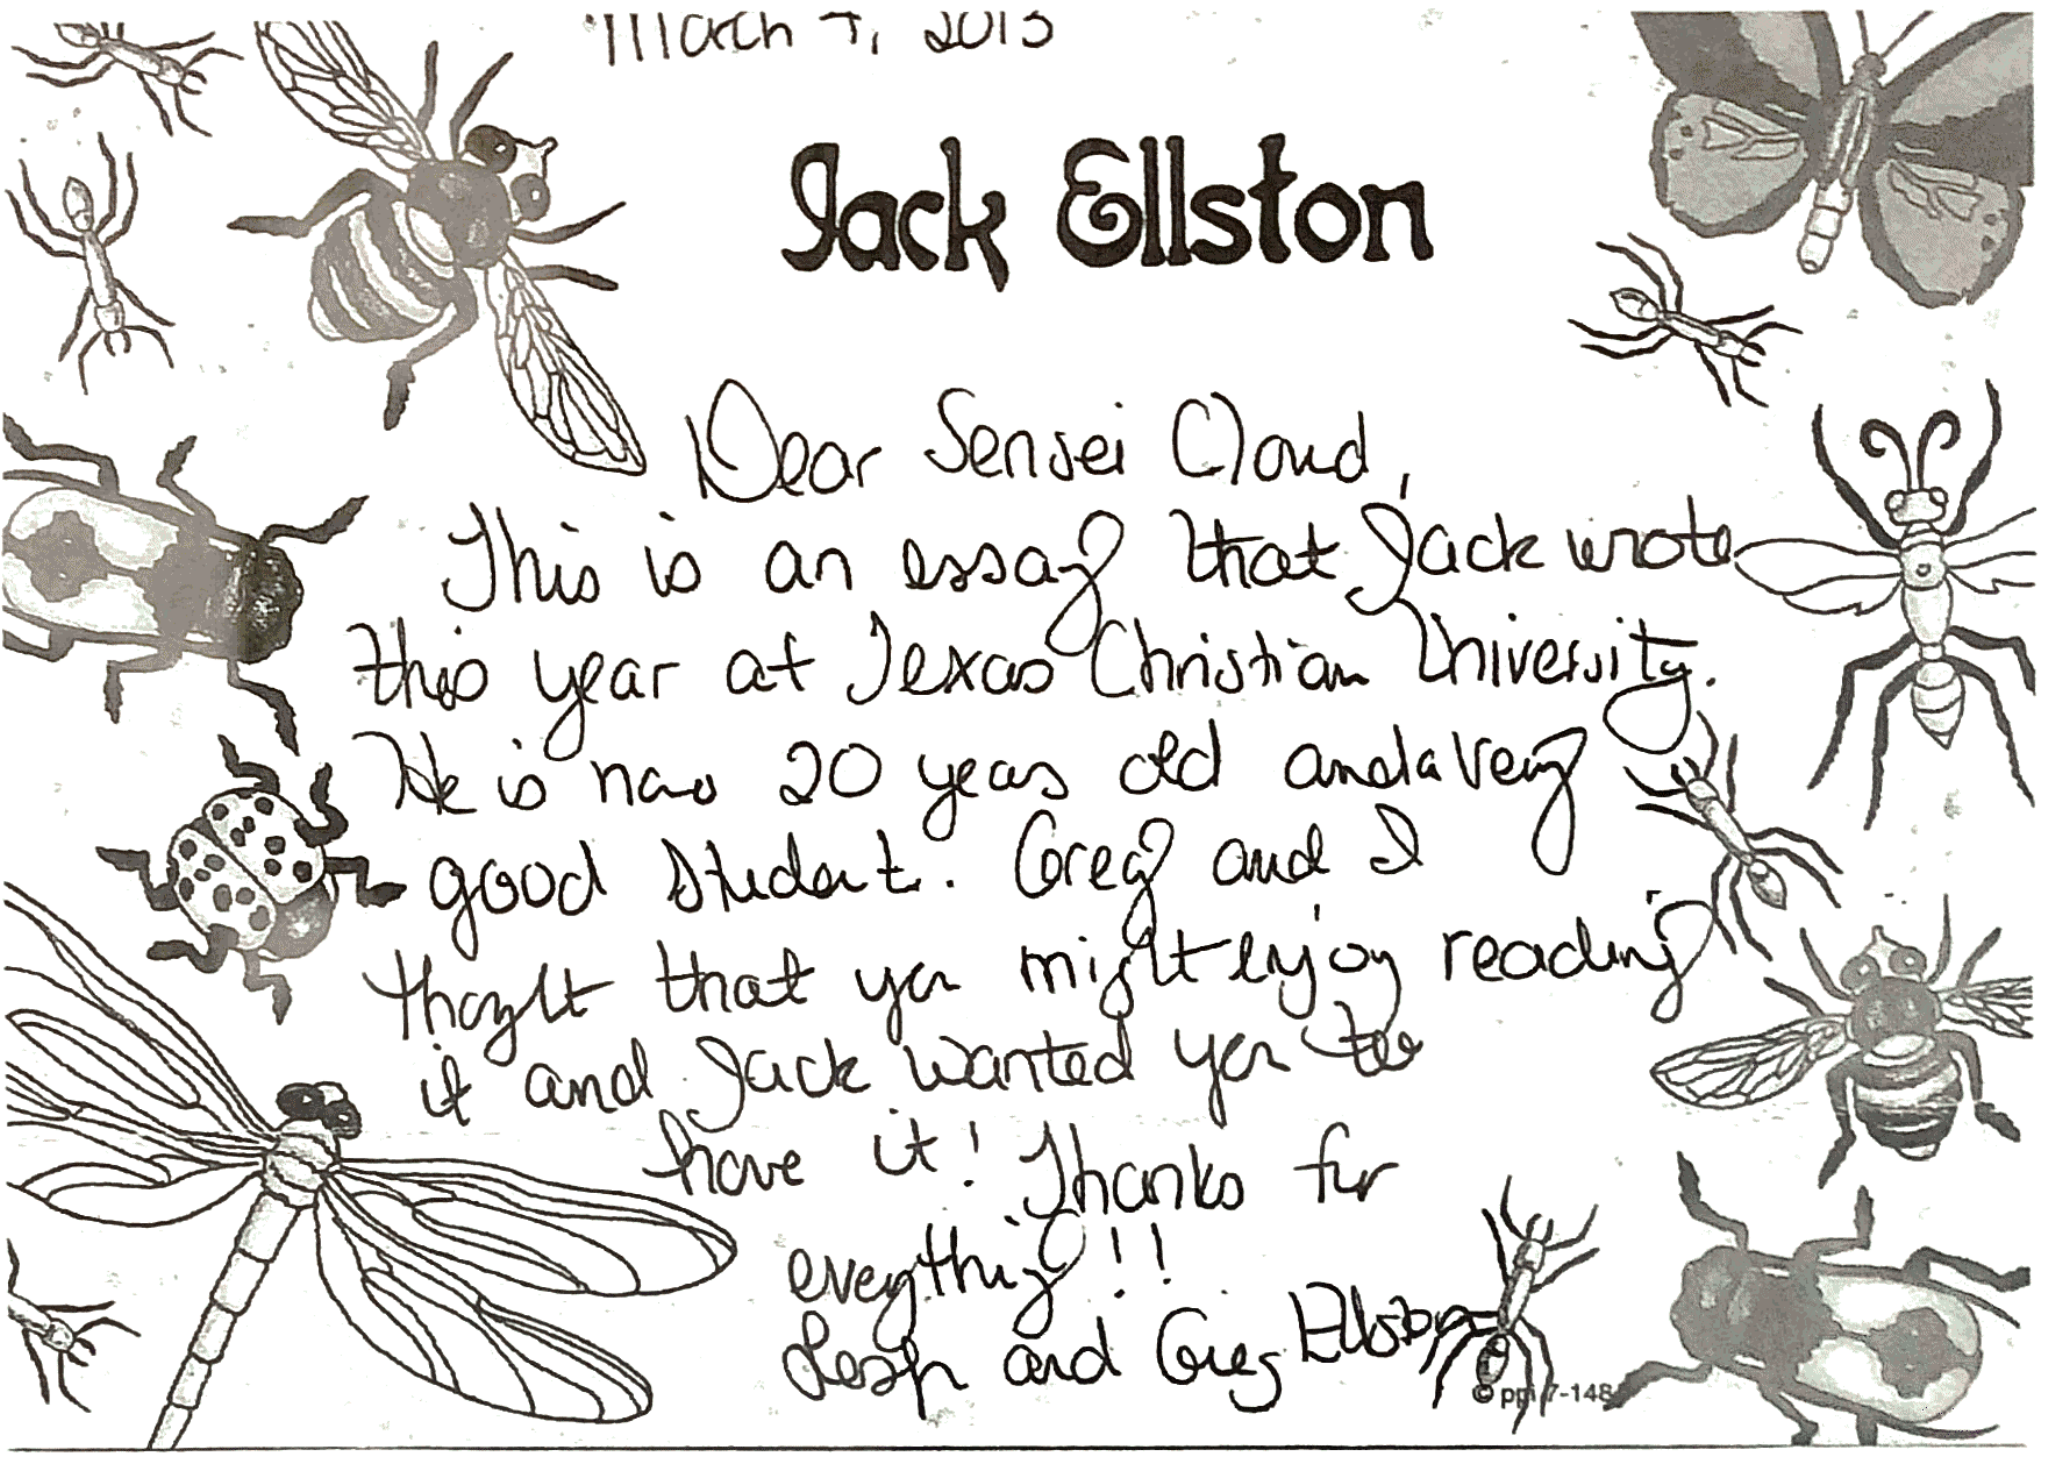 March 7, 2013
Jack Ellston
Dear Sensei Cloud,
This is an essay that Jack wrote
this year at Texas Christian University.
He is now 20 years old and a very
good student. Greg and I
thought that you might enjoy reading
it and Jack wanted you to
have it! Thanks for
everything!!
and Greg Ellston
© ppi 7-148